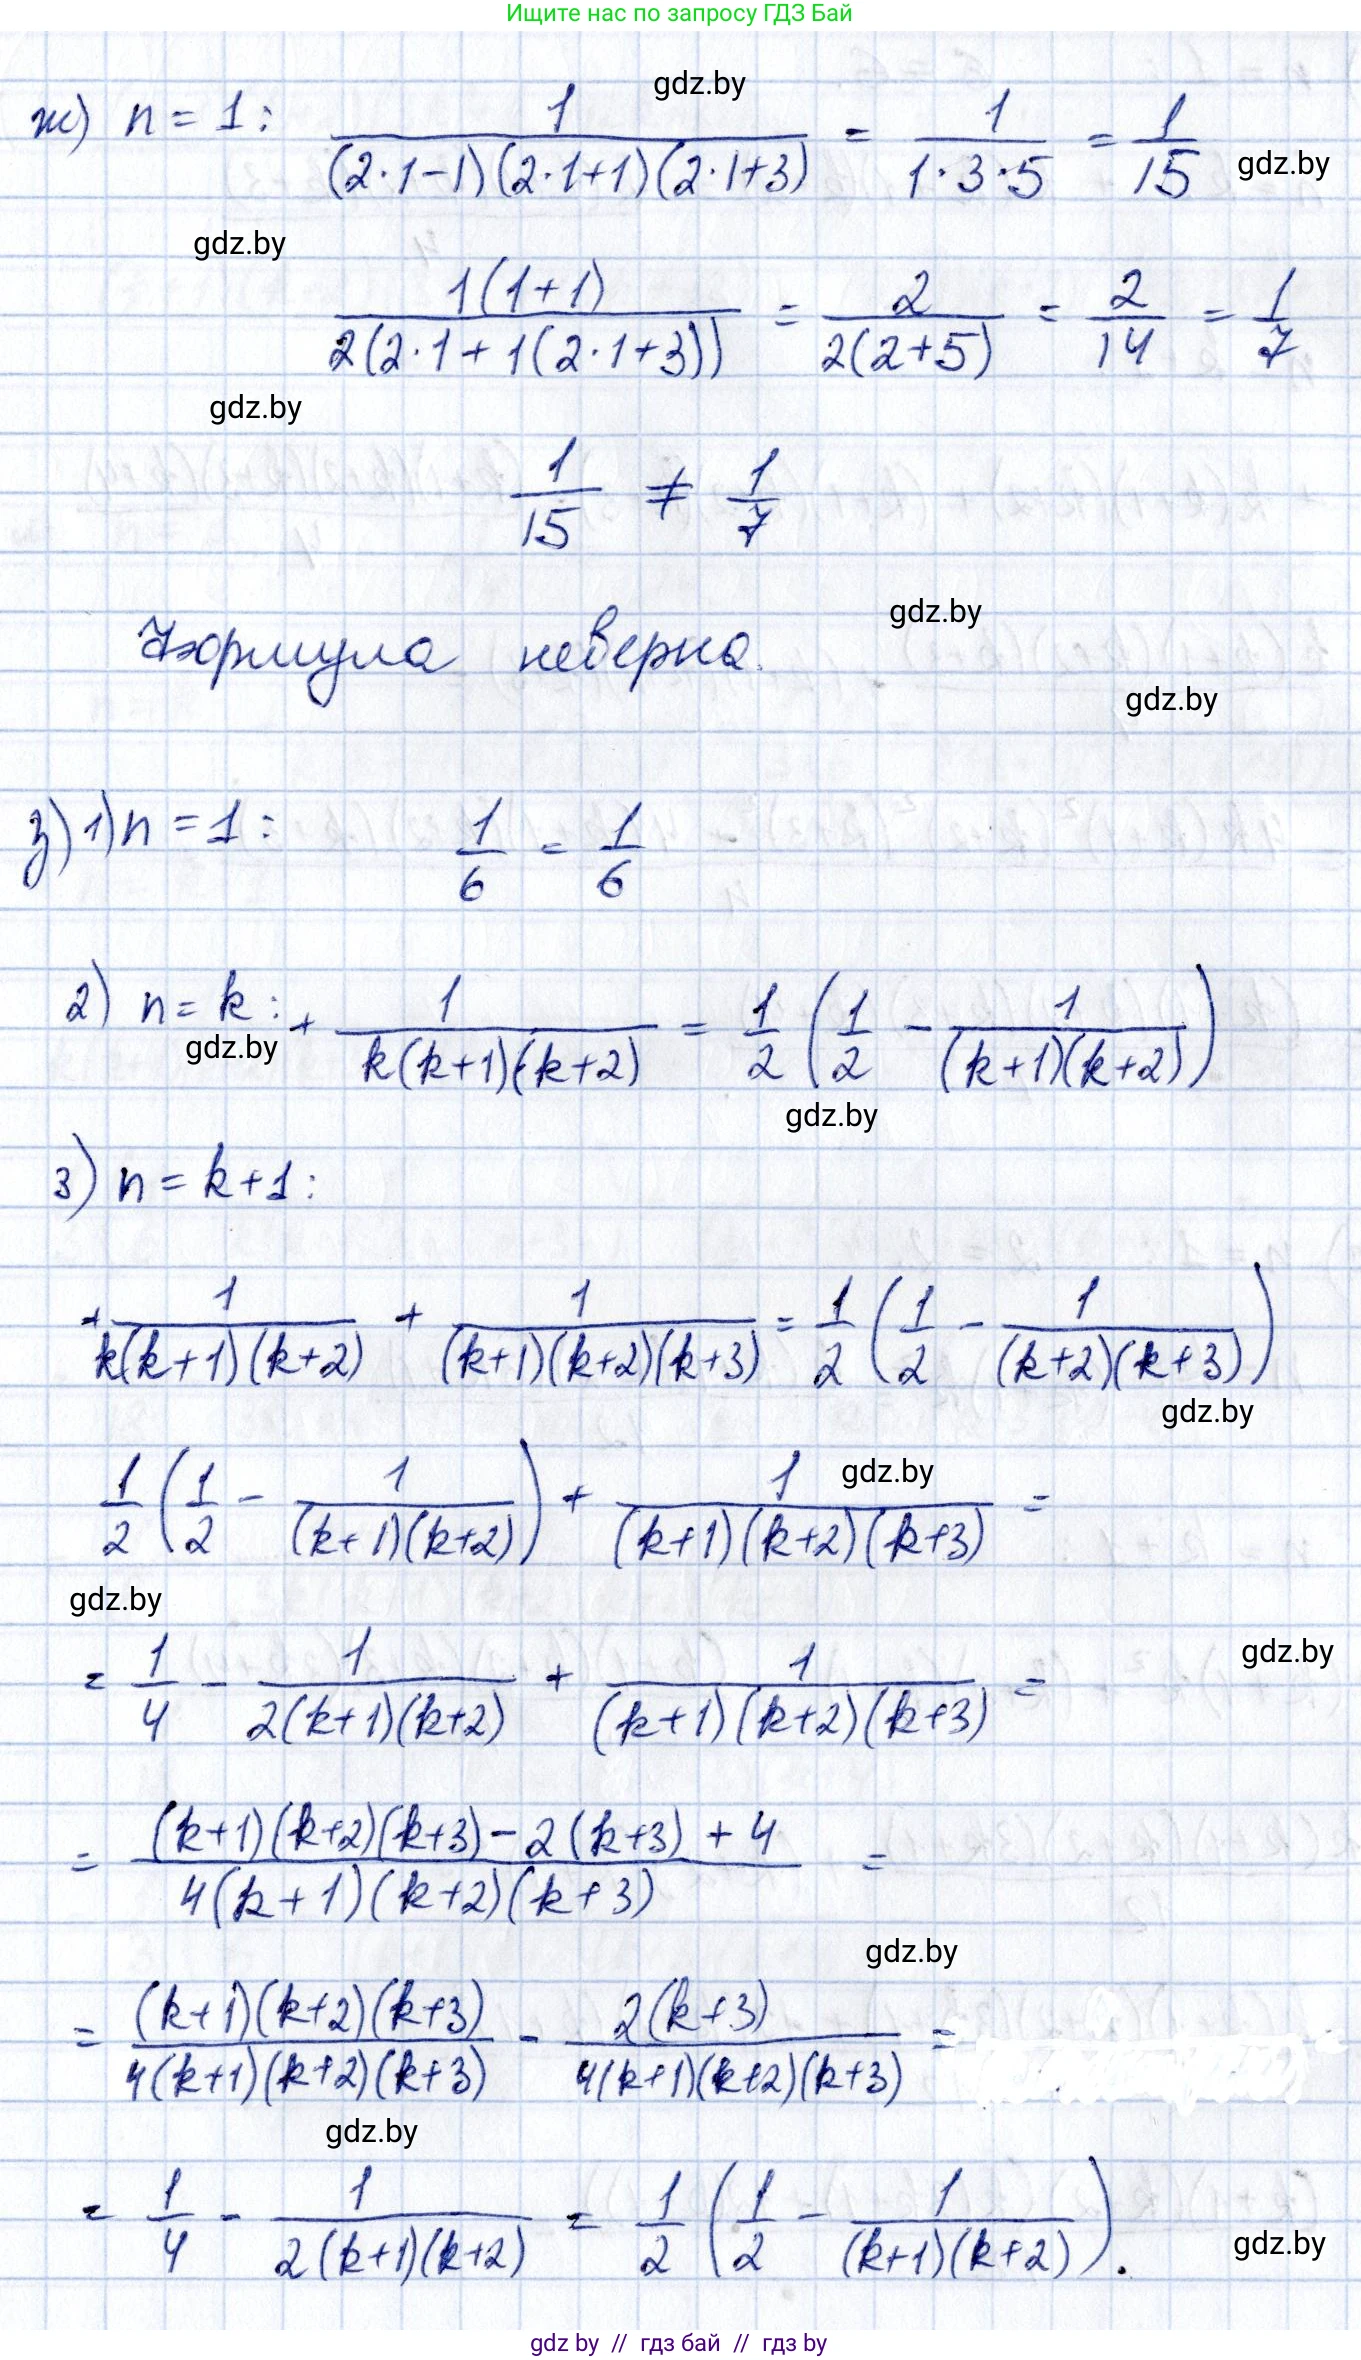 Ищите нас по запросу ГДЗ Бай
gdz.by
ж) n = 1 : 1/((2·1−1)(2·1+1)(2·1+3)) = 1/(1·3·5) = 1/15
gdz.by
gdz.by
1(1+1)/(2(2·1+1(2·1+3))) = 2/(2(2+5)) = 2/14 = 1/7
gdz.by
1/15 ≠ 1/7
gdz.by
Формула неверна.
gdz.by
з) 1) n = 1 : 1/6 = 1/6
2) n = k : + 1/(k(k+1)(k+2)) = 1/2 (1/2 − 1/((k+1)(k+2)))
gdz.by
gdz.by
3) n = k+1 :
+ 1/(k(k+1)(k+2)) + 1/((k+1)(k+2)(k+3)) = 1/2 (1/2 − 1/((k+2)(k+3)))
gdz.by
gdz.by
1/2 (1/2 − 1/((k+1)(k+2))) + 1/((k+1)(k+2)(k+3)) =
gdz.by
gdz.by
= 1/4 − 1/(2(k+1)(k+2)) + 1/((k+1)(k+2)(k+3)) =
= ((k+1)(k+2)(k+3) − 2(k+3) + 4)/(4(k+1)(k+2)(k+3)) =
gdz.by
= (k+1)(k+2)(k+3)/(4(k+1)(k+2)(k+3)) − 2(k+3)/(4(k+1)(k+2)(k+3)) =
gdz.by
= 1/4 − 1/(2(k+1)(k+2)) = 1/2 (1/2 − 1/((k+1)(k+2))).
gdz.by
gdz by // гдз бай // гдз by